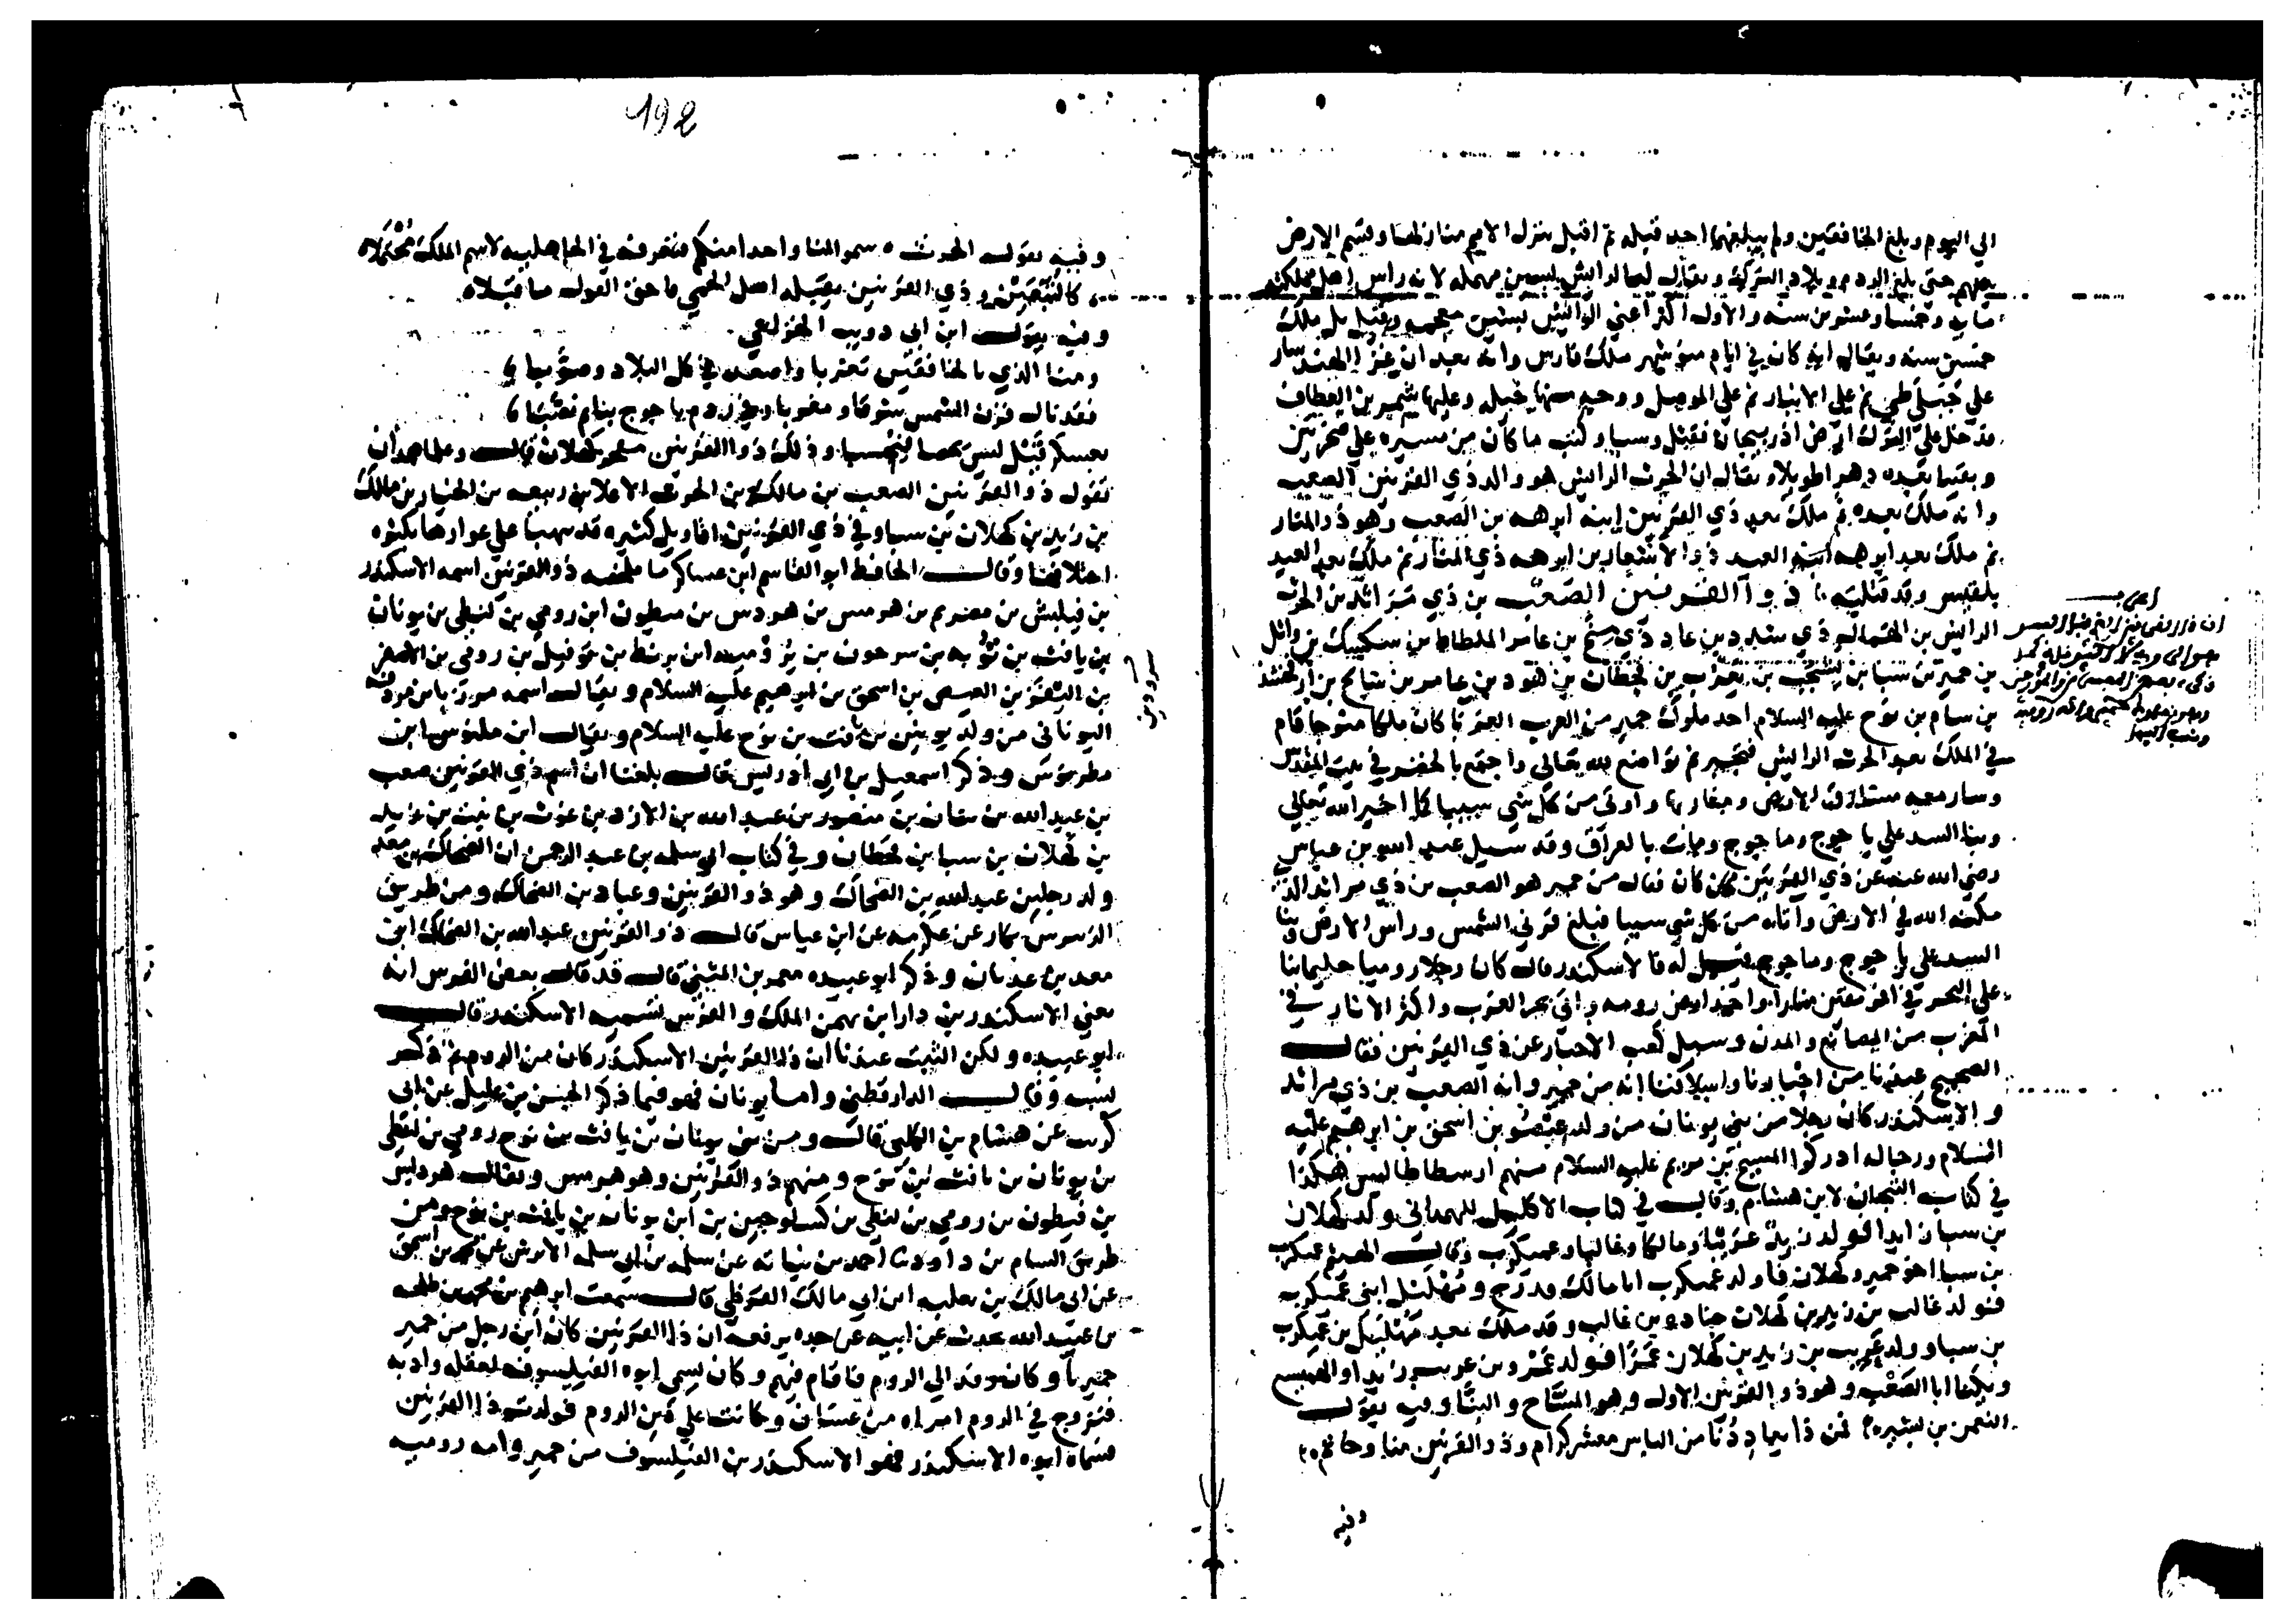 الي اليوم وبلغ الخافقين ولم يبلغهما احد قبله ثم اقبل ينزل الامم منازلها ويقسم الارض
بينهم حتى بلغ الروم وبلاد الترك ويقال لها الرايس بسين مهمله لانه راس اهل مملكته
مايه وخمسا وعشرين سنه والاول اكثر اعني الرايش بشين معجمه وقيل بل ملك
خمسين سنه ويقال انه كان في ايام منوشهر ملك فارس وانه بعد ان غزا الهند سار
علي جبلي طي ثم علي الانبار ثم علي الموصل ووجه منها خيله وعليها شمر بن العطاف
فدخل علي الترك ارض اذربيجان فقتل وسبا وكتب ما كان من مسيره علي حجرين
وبقيا بعده دهرا طويلا ويقال ان الحرث الرايش هو والد ذي القرنين الصعب
وانه ملك بعده ثم ملك بعد ذي القرنين ابنه ابرهه بن الصعب وهو ذو المنار
ثم ملك بعد ابرهه ابنه العبد ذو الاشعار بن ابرهه ذي المنار ثم ملك بعد العبد
بلقيس وقد قتلته ذو القرنين الصعب بن ذي مراثد بن الحرث
الرايش بن الهمال ذي سدد بن عاد ذي بن عامر الملطاط بن سكسك بن وائل
بن حمير بن سبا بن يشجب بن يعرب بن قحطان بن هود بن عابر بن شالخ بن ارفخشد
بن سام بن نوح عليه السلام احد ملوك حمير من العرب العربا كان ملكا متوجا قام
في الملك بعد الحرث الرايش فتجبر ثم تواضع لله تعالي واجتمع بالخضر في بيت المقدس
وسار معه مشارق الارض ومغاربها واوتي من كل شي سببا كما اخبر الله تعالي
وبنا السد علي ياجوج وماجوج ومات بالعراق وقد سيل عبد الله بن عباس
رضي الله عنه عن ذي القرنين ممن كان فقال من حمير هو الصعب بن ذي مراثد الذي
مكنه الله في الارض واتاه من كل شي سببا فبلغ قرني الشمس وراس الارض وبنا
السد علي ياجوج وماجوج قيل له فالاسكندر قال كان رجلا روميا حليما بنا
علي البحر في افريقين منارا واخذ ارض رومه واتي بحر العرب واكثر الاثار في
المغرب من المصانع والمدن وسيل كعب الاحبار عن ذي القرنين فقال
الصحيح عندنا من احبارنا واسلافنا انه من حمير وانه الصعب بن ذي مراثد
والاسكندر كان رجلا من بني يونان من ولد عيصو بن اسحق بن ابرهيم عليه
السلام ورجاله ادركوا المسيح بن مريم عليه السلام منهم ارسطاطاليس هكذا
في كتاب التيجان لابن هشام وقال في كتاب الاكليل للهمداني ولد كهلان
بن سبا زيدا فولد زيد عريبا ومالكا وغالبا وعميكرب وقال الهيثم عميكرب
بن سبا اخو حمير وكهلان فاولد عميكرب ابا مالك فدرج ومهليل ابني عميكرب
فولد غالب بن زيد بن كهلان جناده بن غالب وقد ملك بعد مهليل بن عميكرب
بن سبا وولد عريب بن زيد بن كهلان عمرا فولد عمرو بن عريب زيدا والهميسع
ويكنا ابا الصعب وهو ذو القرنين الاول وهو المساح والبنا وفيه يقول
النعمن بن بشير فمن ذا يعاددنا من الناس معشر كرام وذو القرنين منا وحاتم
وفيه
192
وفيه يقول الحرث سموا لنا واحدا منكم فنعرفه في الجاهلية لاسم الملك محتملا
كالتبعين وذي القرنين يقبله اهل الحجي فاحق القول ما قبلا
وفيه يقول ابن ابي دويب الخزاعي
ومنا الذي بالخافقين تغربا واصعد في كل البلاد وصوبا
فقد نال قرن الشمس شرقا ومغربا وفي ردم ياجوج بنا ثم نصبا
بعسكر قيل ليس يحصا ليحسبا وذلك ذو القرنين كهلان قال وعلما همدان
تقول ذو القرنين الصعب بن مالك بن الحرث الاعلا بن ربيعه بن الخيار بن مالك
بن زيد بن كهلان بن سبا وفي ذي القرنين اقاويل كثيره قد نبهنا علي عوارها بكثره
اختلافها وقال الحافظ ابو القاسم ابن عساكر ما ملخصه ذو القرنين اسمه الاسكندر
بن فيلبش بن مصريم بن هرمس بن هردس بن ميطون ابن رومي بن لنطي بن يونان
بن يافث بن نوبه بن سرحون بن ابن برنط بن توفيل بن رومي بن الاصفر
بن اليفز بن العيص بن اسحق بن ابرهيم عليه السلام ويقال اسمه مرزبا بن مردبه
اليوناني من ولد يونن بن يافث بن نوح عليه السلام ويقال ابن ابن
مطريوس وذكر اسمعيل بن ابي ادريس قال بلغنا ان اسم ذي القرنين صعب
بن عبد الله بن قنان بن منصور بن عبد الله بن الازد بن غوث بن نبت بن زيد
بن كهلان بن سبا بن قحطان وفي كتاب ابي سلمه بن عبد الرحمن ان الضحاك بن معد
ولد رجلين عبد الله بن الضحاك وهو ذو القرنين وعباد بن الضحاك ومن طريق
الزبير بن بكار عن عكرمه عن ابن عباس قال ذو القرنين عبد الله بن الضحاك ابن
معد بن عدنان وذكر ابو عبيده معمر بن المثني قال قد قال بعض الفرس انه
يعني الاسكندر بن دارا بن بهمن الملك والفرس تسميه الاسكندر قال
ابو عبيده ولكن الثبت عندنا ان ذا القرنين الاسكندر كان من الروم ثم ذكر
نسبه وقال الدارقطني واما يونان فهو فيما ذكر الحسن بن عليل عن ابي
كريب عن هشام بن الكلبي قال ومن بني يونان بن يافث بن نوح رومي بن لنطي
بن يونان بن يافث بن نوح ومنهم ذو القرنين وهو هرمس ويقال هرديس
بن فيطون بن رومي بن لنطي بن كسلوجين بن ابن يونان بن يافث بن نوح ومن
طريق السام بن داود بنا احمد بن نباته عن سلمه بن ابي سلمه الابرش عن محمد بن اسحق
عن ابي مالك بن ثعلبه ابن ابي مالك القرظي قال سمعت ابرهيم بن محمد بن طلحه
بن عبيد الله يحدث عن ابيه عن جده يرفعه ان ذا القرنين كان ابن رجل من حمير
حميريا وكان وفد الي الروم فاقام فيهم وكان يسمي ابوه الفيلسوف لعقله وادبه
فتزوج في الروم امراه من غسان وكانت علي دين الروم فولدت ذا القرنين
فسماه ابوه الاسكندر فهو الاسكندر بن الفيلسوف من حمير وامه روميه